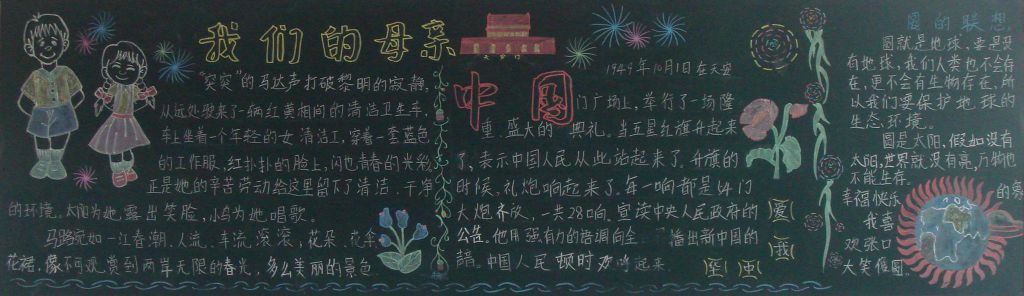 我们的母亲
中国
"突突"的马达声打破黎明的寂静,
从远处驶来了一辆红黄相间的清洁卫生车,
车上坐着一个年轻的女清洁工,穿着一套蓝色
的工作服,红扑扑的脸上,闪出青春的光彩,
正是她的辛苦劳动给这里留下了清洁、干净
的环境。太阳为她露出笑脸,小鸟为她唱歌。
马路宛如一江春潮,人流、车流滚滚;花朵、花伞、
花裙,像不可观赏到两岸无限的春光,多么美丽的景色
天安门
1949年10月1日在天安
门广场上,举行了一场隆
重、盛大的典礼。当五星红旗升起来
了,表示中国人民从此站起来了,升旗的
时候,礼炮响起来了,每一响都是54门
大炮齐放,一共28响。宣读中央人民政府的
公告。他用强有力的语调向全 播出新中国的
中国人民顿时 欢呼起来
爱
我
圆的联想
圆就是地球,要是没
有地球,我们人类也不会存
在,更不会有生物存在,所
以我们要保护地球的
生态环境。
圆是太阳,假如没有
太阳,世界就没有亮,万物也
不能生存。
幸福快乐的
我喜
双张口
大笑 圆